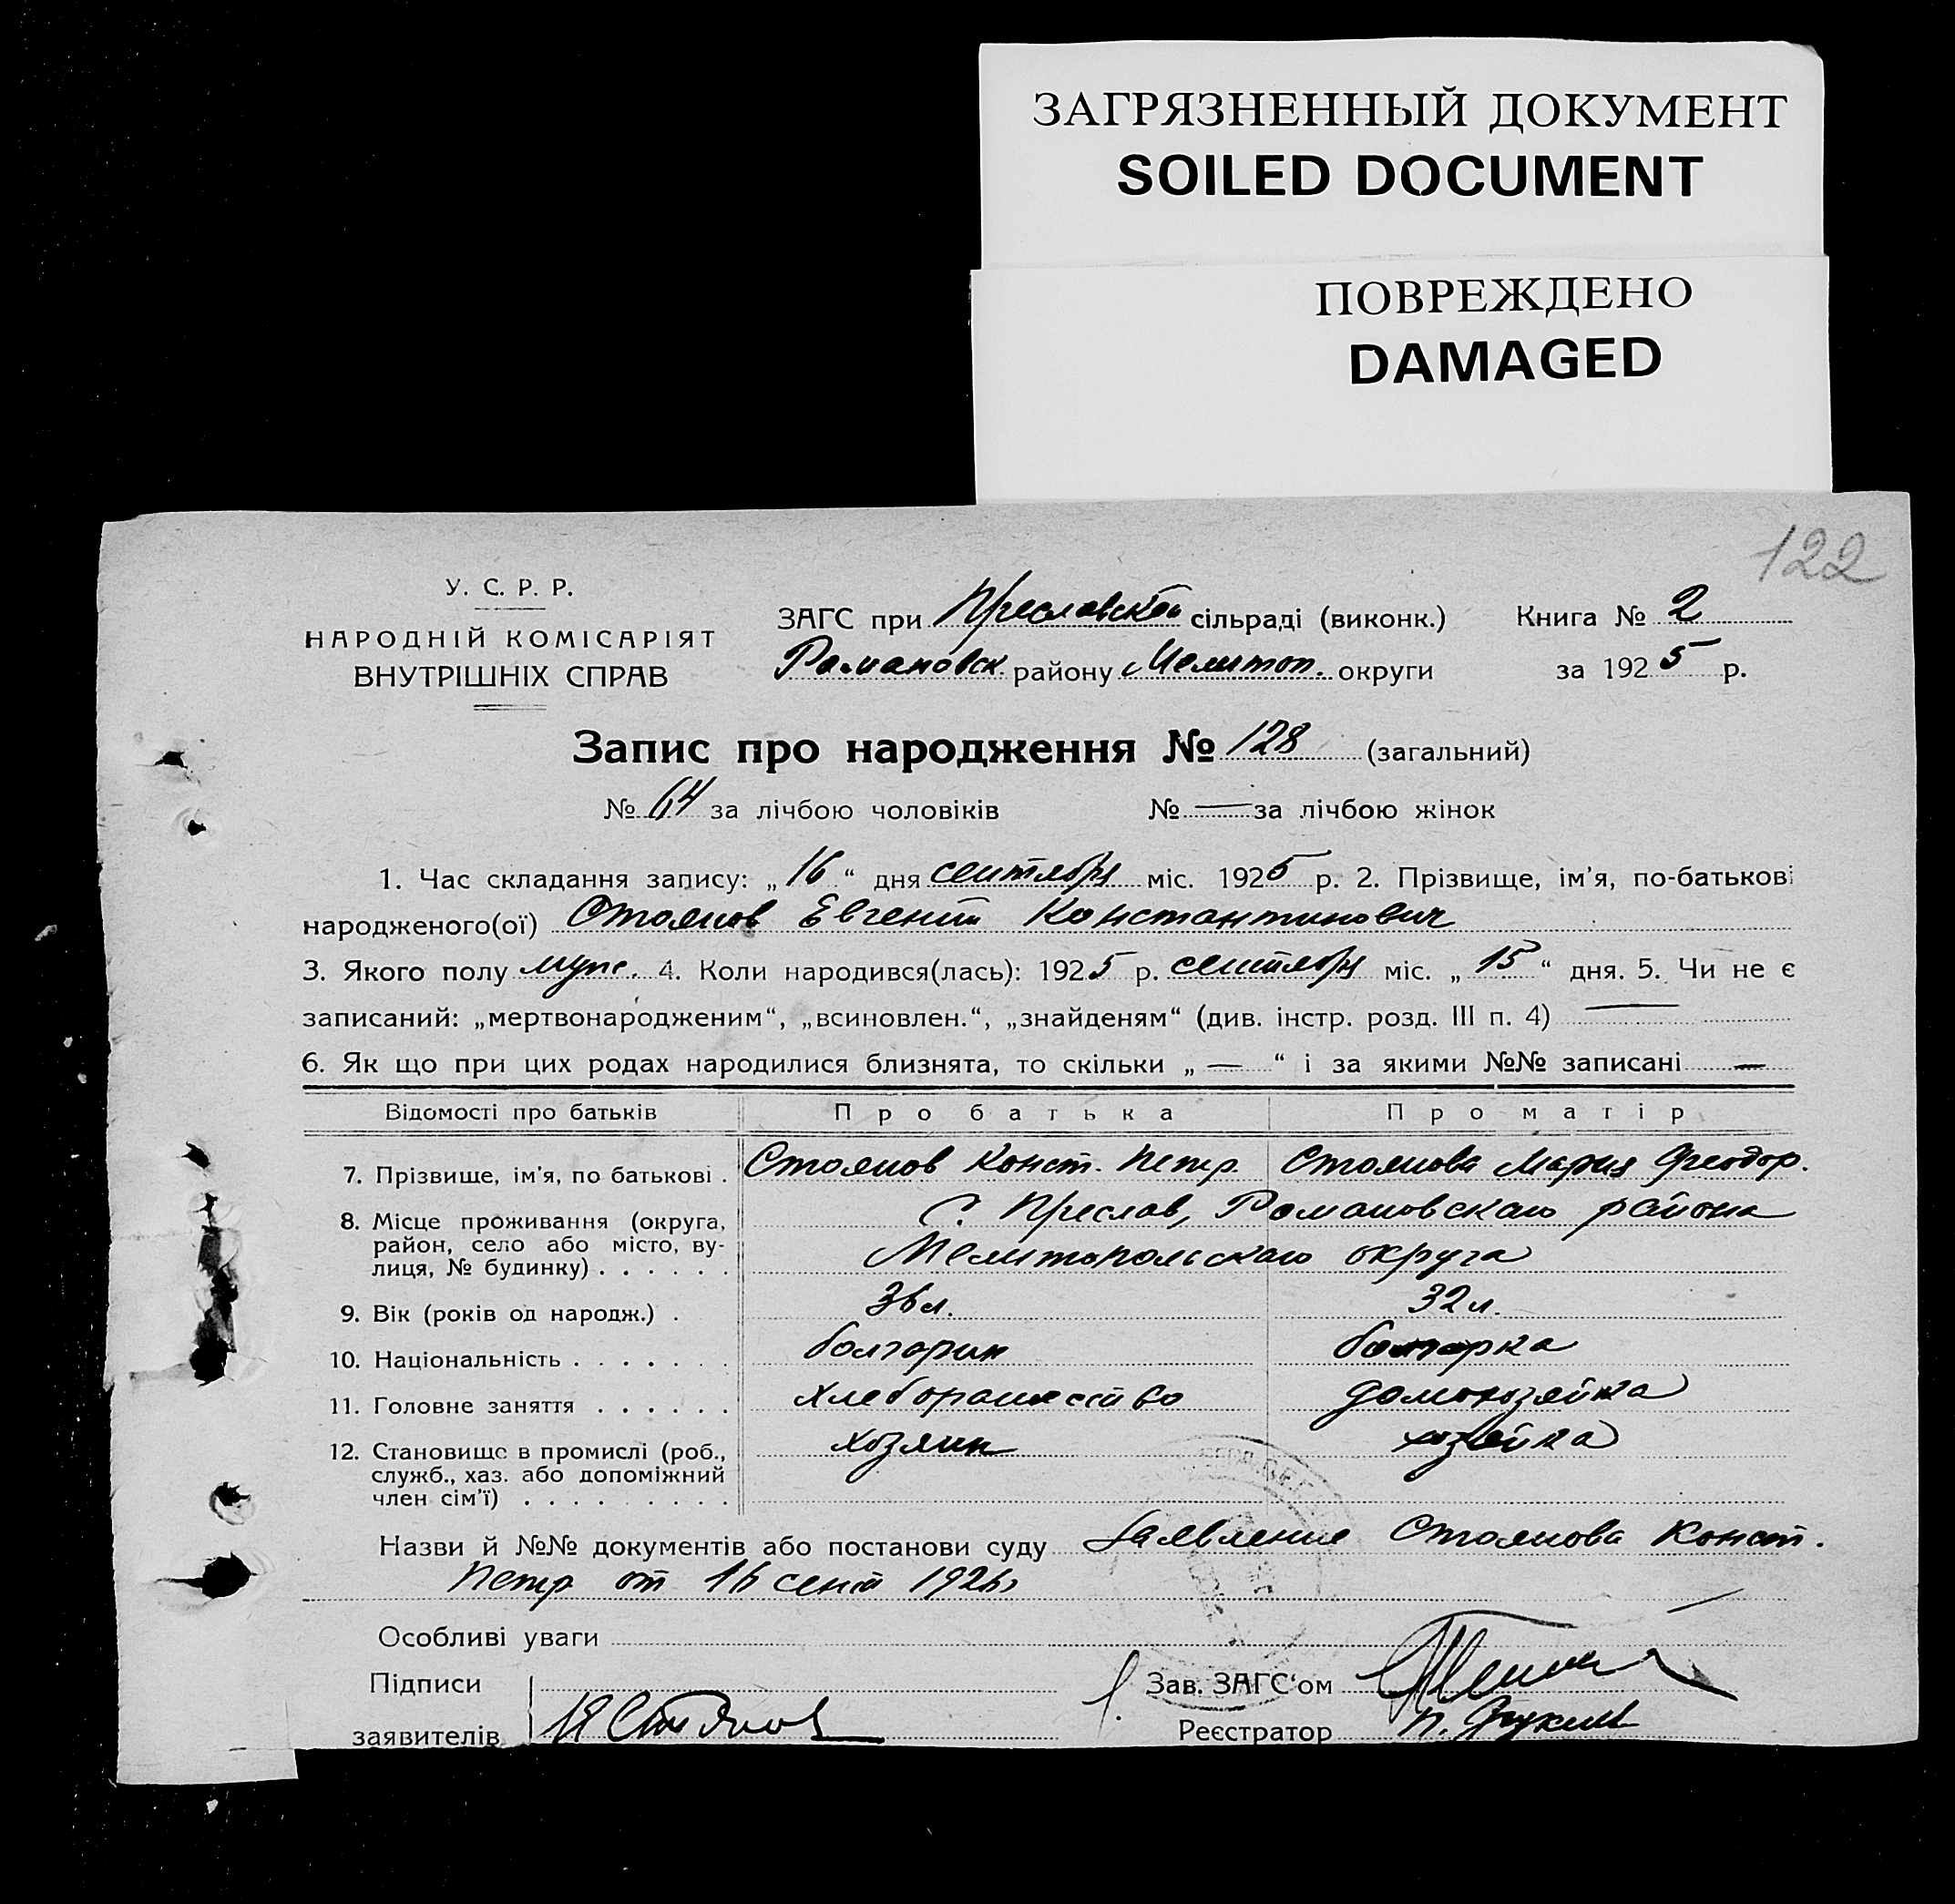 ЗАГРЯЗНЕННЫЙ ДОКУМЕНТ
SOILED DOCUMENT
ПОВРЕЖДЕНО
DAMAGED
122
У. С. Р. Р.
НАРОДНІЙ КОМІСАРІЯТ
ВНУТРІШНІХ СПРАВ
ЗАГС при Преславской сільраді (виконк.) Книга № 2
Романовск. району Мелитоп. округи за 1925 р.
Запис про народження № 128 (загальний)
№ 64 за лічбою чоловіків № — за лічбою жінок
1. Час складання запису: „16“ дня сентября міс. 1925 р. 2. Прізвище, ім'я, по-батькові
народженого(ої) Стоянов Евгений Константинович
3. Якого полу муж. 4. Коли народився(лась): 1925 р. сентября міс. „15“ дня. 5. Чи не є
записаний: „мертвонародженим“, „всиновлен.“, „знайденям“ (див. інстр. розд. III п. 4) —
6. Як що при цих родах народилися близнята, то скільки „—“ і за якими №№ записані —
Відомості про батьків Про батька Про матір
7. Прізвище, ім'я, по батькові . Стоянов Конст. Петр. Стоянова Мария Феодор.
8. Місце проживання (округа, С. Преслав, Романовскаго района
район, село або місто, ву-
лиця, № будинку) . . . . . . Мелитопольскаго округа
9. Вік (років од народж.) . 36 л. 32 л.
10. Національність . . . . . . . болгарин болгарка
11. Головне заняття . . . . . . хлебопашество домохозяйка
12. Становище в промислі (роб., хозяин хозяйка
служб., хаз. або допоміжний
член сім'ї) . . . . . . . . .
Назви й №№ документів або постанови суду Заявление Стоянова Конст.
Петр от 16 сент
Особливі уваги
Підписи
Зав. ЗАГС'ом
заявителів Стоянов
Реєстратор П.